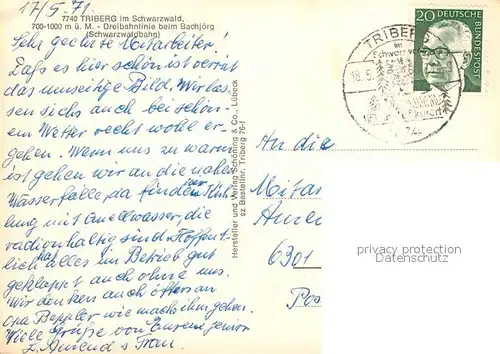 17/5. 71.
7740 TRIBERG im Schwarzwald,
700-1000 m ü. M. - Dreibahnlinie beim Bachjörg
(Schwarzwaldbahn)
Sehr geehrte Mitarbeiter!
Daß es hier schön ist verrät
das umseitige Bild. Wir las-
sen sichs auch bei schön-
em Wetter recht wohl er-
gehen. Wenn uns zu warm
ist gehen wir an die nahen
Wasserfälle, da finden wir Küh
lung mit Quellwasser, die
radionhaltig sind. Hoffent
lich hat alles im Betrieb gut
geklappt auch ohne uns.
Wir denken auch öfters an
Opa Beppler wie mach ihm gehen.
Viele Grüße von Eurem senior
Amend u Frau.
Hersteller und Verlag Schöning & Co., Lübeck
sz Bestellnr. Triberg 76-1
TRIBERG
im
Schwarzwald
18.5.
20 DEUTSCHE
BUNDESPOST
An die
Mitar
6301
Pos
privacy protection
Datenschutz